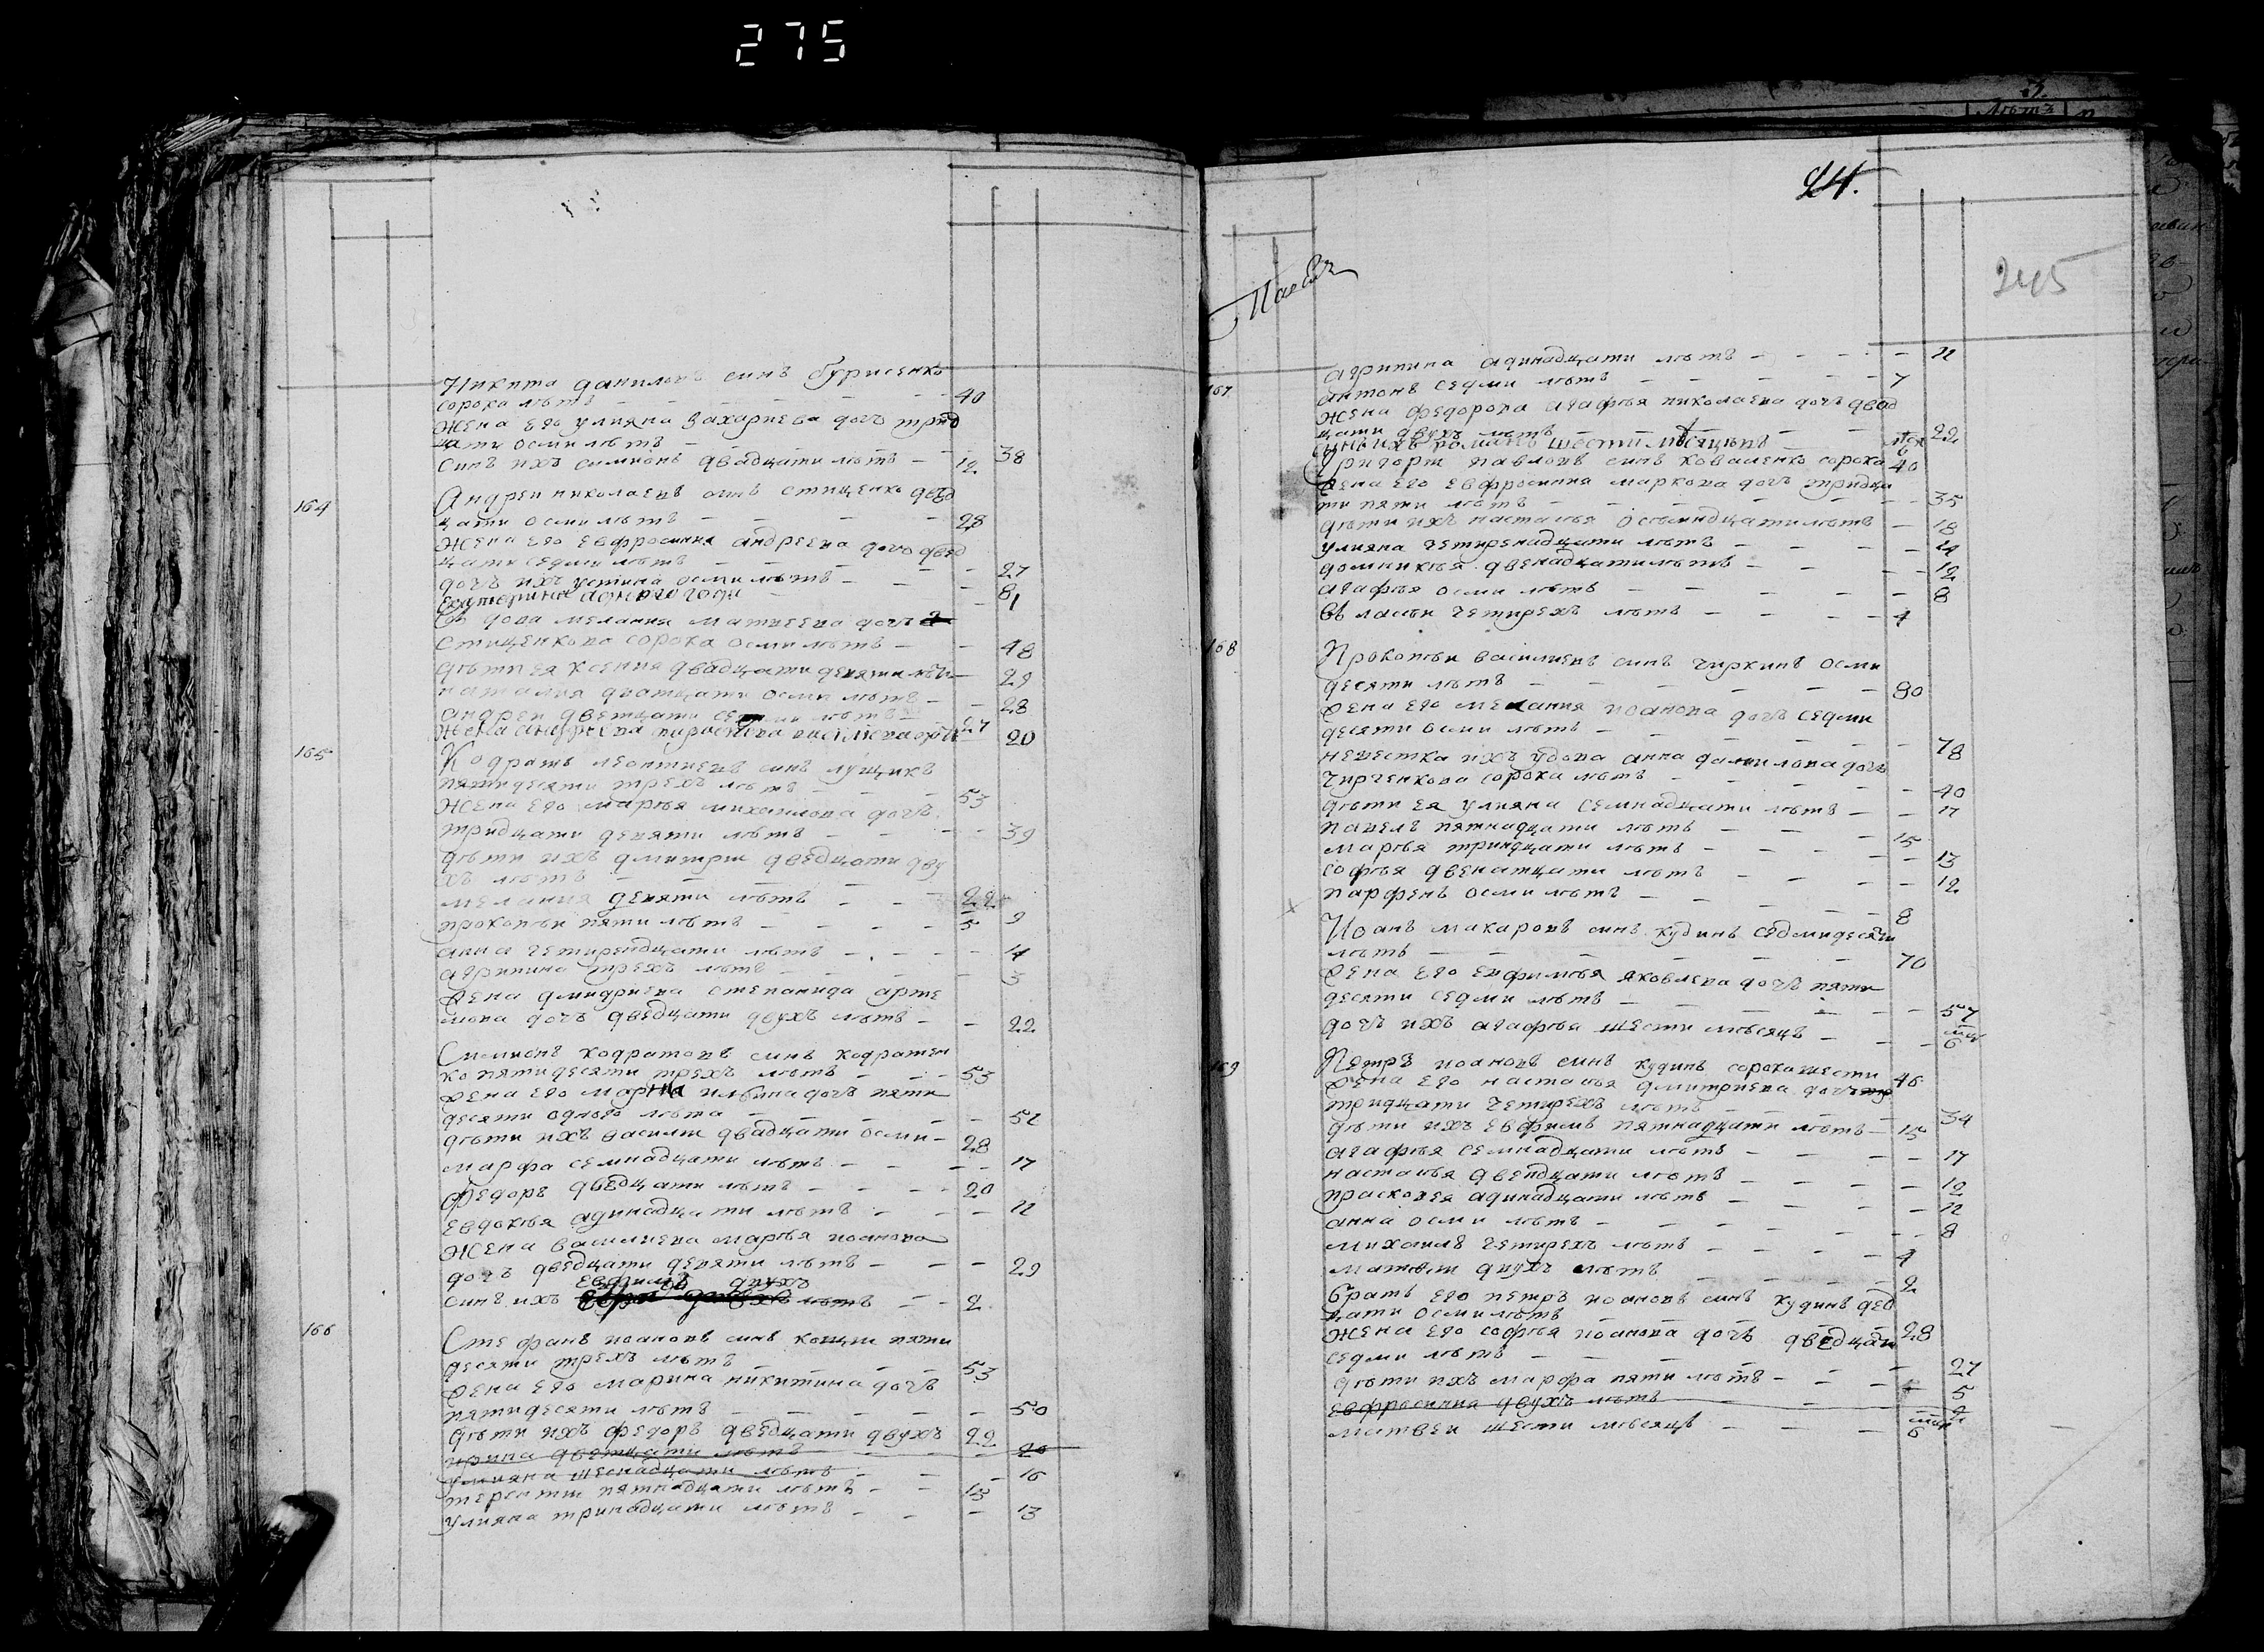 275
Никита даниловъ синъ бурисенко
сорока лѣтъ — 40
жена его улияна захариева дочъ трид
цати осми лѣтъ — 38
синъ ихъ симионъ двадцати лѣтъ — 12
164 Андреи николаевъ синъ стищенко двад
цати осми лѣтъ — 28
жена его евфросиния андреева дочъ двад
цати седми лѣтъ — 27
дочъ ихъ устина осми лѣтъ — 8
екатерина одного году — 1
вдова мелания матвеева дочъ
стищенкова сорока осми лѣтъ — 48
дѣти ея ксения двадцати девяти лѣтъ — 29
наталия дватцати осми лѣтъ — 28
андреи дветцати седми лѣтъ — 27
жена андреева василева дочъ 20
165 Кодратъ леонтиевъ синъ лущикъ
пятидесяти трехъ лѣтъ — 53
жена его марья михаилова дочъ
тридцати девяти лѣтъ — 39
дѣти ихъ дмитрии двадцати дву
хъ лѣтъ — 22
мелания девяти лѣтъ — 9
прокопьи пяти лѣтъ — 5
анна четиренадцати лѣтъ — 14
агрипина трехъ лѣтъ — 3
жена дмидриева степанида арте
мова дочъ двадцати двухъ лѣтъ — 22
Симионъ кодратовъ синъ кодратен
ко пятидесяти трехъ лѣтъ — 53
жена его илѣина дочъ пяти
десяти одного лѣта — 51
дѣти ихъ василии двадцати осми — 28
марфа семнадцати лѣтъ — 17
федоръ двадцати лѣтъ — 20
евдокѣя адинадцати лѣтъ — 11
жена василиева марья иоанова
дочъ двадцати девяти лѣтъ — 29
евфимъ двухъ
синъ ихъ лѣтъ — 2
166 Стефанъ иоановъ синъ кощии пяти
десяти трехъ лѣтъ — 53
жена его марина никитина дочъ
пятидесяти лѣтъ — 50
дѣти ихъ федоръ двадцати двухъ 22
ирина дветцати лѣтъ — 20
улияна шеснадцати лѣтъ — 16
терентии пятнадцати лѣтъ — 15
улияна тринадцати лѣтъ — 13
24.
245
167 агрипина адинадцати лѣтъ — 11
антонъ седми лѣтъ — 7
жена федорова агафья николаева дочъ двад
цати двухъ лѣтъ — 22
синъ ихъ романъ шести мѣсяцовъ — 6
Григори павловъ синъ коваленко сорока 40
жена его евфросиния маркова дочъ тридца
ти пяти лѣтъ — 35
дѣти ихъ настасья осѣмнадцати лѣтъ — 18
улияна четиренадцати лѣтъ — 14
домникѣя двенадцати лѣтъ — 12
агафѣя осми лѣтъ — 8
власии четирехъ лѣтъ — 4
168 Прокопьи василиевъ синъ чиркинъ осми
десяти лѣтъ — 80
жена его мелания иоанова дочъ седми
десяти осми лѣтъ — 78
невестка ихъ удова анна данилова дочъ
чирченкова сорока лѣтъ — 40
дѣти ея улияна семнадцати лѣтъ — 17
павелъ пятнадцати лѣтъ — 15
марѣя тринадцати лѣтъ — 13
софѣя двенатцати лѣтъ — 12
парфенъ осми лѣтъ — 8
Иоанъ макаровъ синъ кудинъ седмидесяти
лѣтъ — 70
жена его евфимѣя яковлева дочъ пяти
десяти седми лѣтъ — 57
дочъ ихъ агафѣя шести мѣсяцъ — 6
169 Петръ иоановъ синъ кудинъ сорока шести 46
жена его настасья дмитриева дочъ
тридцати четирехъ лѣтъ — 34
дѣти ихъ евфимъ пятнадцати лѣтъ — 15
агафѣя семнадцати лѣтъ — 17
настасья двенадцати лѣтъ — 12
прасковея адинадцати лѣтъ — 11
анна осми лѣтъ — 8
михаилъ четирехъ лѣтъ — 4
матвеи двухъ лѣтъ — 2
братъ его петръ иоановъ синъ кудинъ двад
цати осми лѣтъ — 28
жена его софѣя иоанова дочъ двадцати
седми лѣтъ — 27
дѣти ихъ марфа пяти лѣтъ — 5
евфросиния двухъ лѣтъ — 2
матвеи шести мѣсяцъ — 6